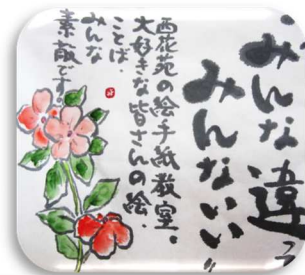 みんな違って
みんないい〃
西花苑の絵手紙教室。
大好きな皆さんの絵・
ことば・
みんな
素敵です。